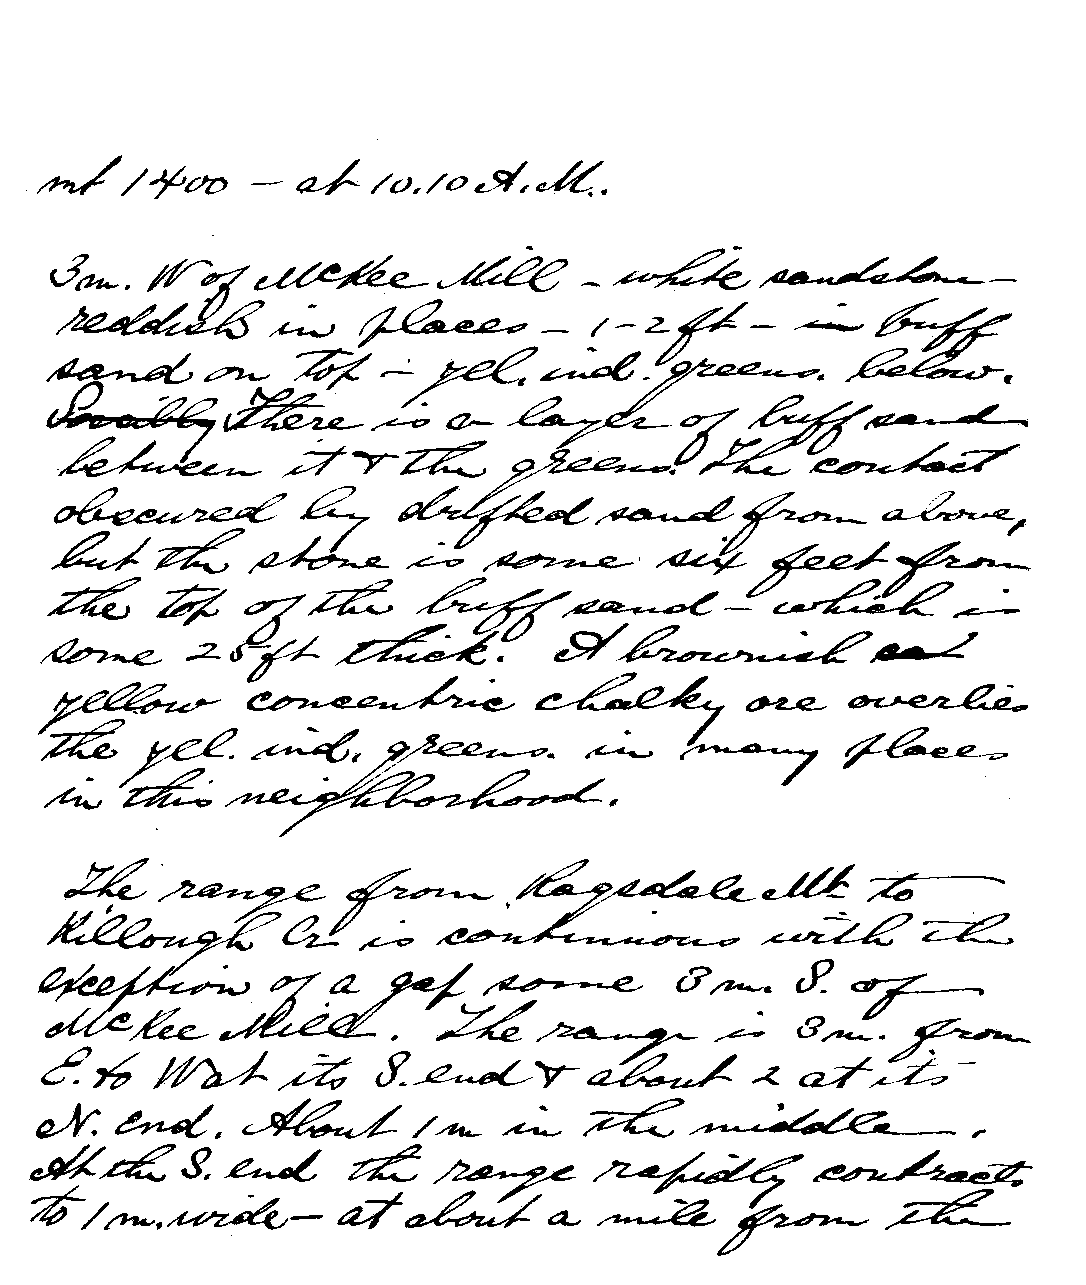 mt 1400 – at 10.10 A.M..
3 m. W of McKee Mill – white sandstone –
reddish in places – 1–2 ft – in buff
sand on top – yel. ind. greens. below.
There is a layer of buff sand
between it & the greens. The contact
obscured by drifted sand from above,
but the stone is some six feet from
the top of the buff sand – which is
some 25 ft thick. A brownish
yellow concentric chalky ore overlies
the yel. ind. greens. in many places
in this neighborhood.
The range from Ragsdale Mt to
Killough Cr is continuous with the
exception of a gap some 3 m. S. of
McKee Mill. The range is 3 m. from
E. to W at its S. end & about 2 at its
N. end. About 1 m in the middle.
At the S. end the range rapidly contracts
to 1 m. wide – at about a mile from the